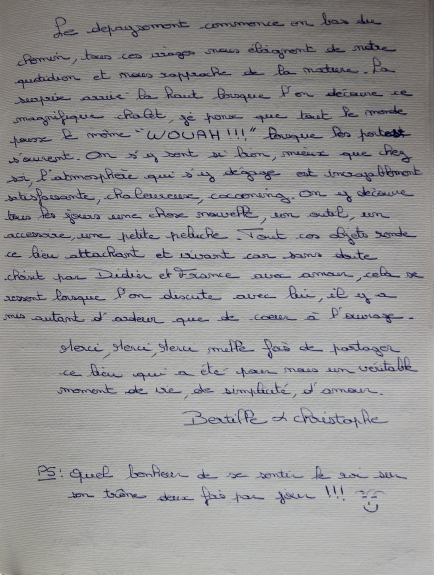 Le depaysement commence en bas du
chemin, tous ces virages nous éloignent de notre
quotidien et nous rapproche de la nature. La
surprise arrive là haut lorsque l'on découvre ce
magnifique chalet, je pense que tout le monde
pousse le même "WOUAH!!!" lorsque les portes
s'ouvrent. On s'y sent si bien, mieux que chez
soi l'atmosphère qui s'y dégage est incroyablement
satisfaisante, chaleureux, cocooning. On y découvre
tous les jours une chose nouvelle, un outil, un
accessoire, une petite peluche. Tout ces objets rende
ce lieu attachant et vivant car sans doute
choisit par Didier et France avec amour, cela se
ressent lorsque l'on discute avec lui, il y a
mis autant d'ardeur que de coeur à l'ouvrage.
Merci, Merci, Merci mille fois de partager
ce lieu qui a été pour nous un véritable
moment de vie, de simplicité, d'amour.
Bertille & Christophe
PS: Quel bonheur de se sentir le roi sur
son trône deux fois par jour !!!